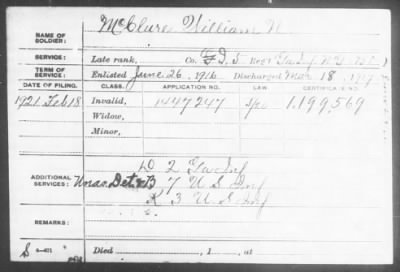 NAME OF SOLDIER: McClure, William N
SERVICE: Late rank, Co. Reg't Ga Inf
TERM OF SERVICE: Enlisted June 26, 1916 Discharged Mar 18, 1917
DATE OF FILING. CLASS. APPLICATION NO. LAW CERTIFICATE NO.
1921 Feb 18 Invalid, 1447247 1,199,569
Widow,
Minor,
D 2 Ga Inf
ADDITIONAL SERVICES: Unas. Det B 7 U S Inf
K 3 U S Inf
REMARKS:
Died , 1 , at